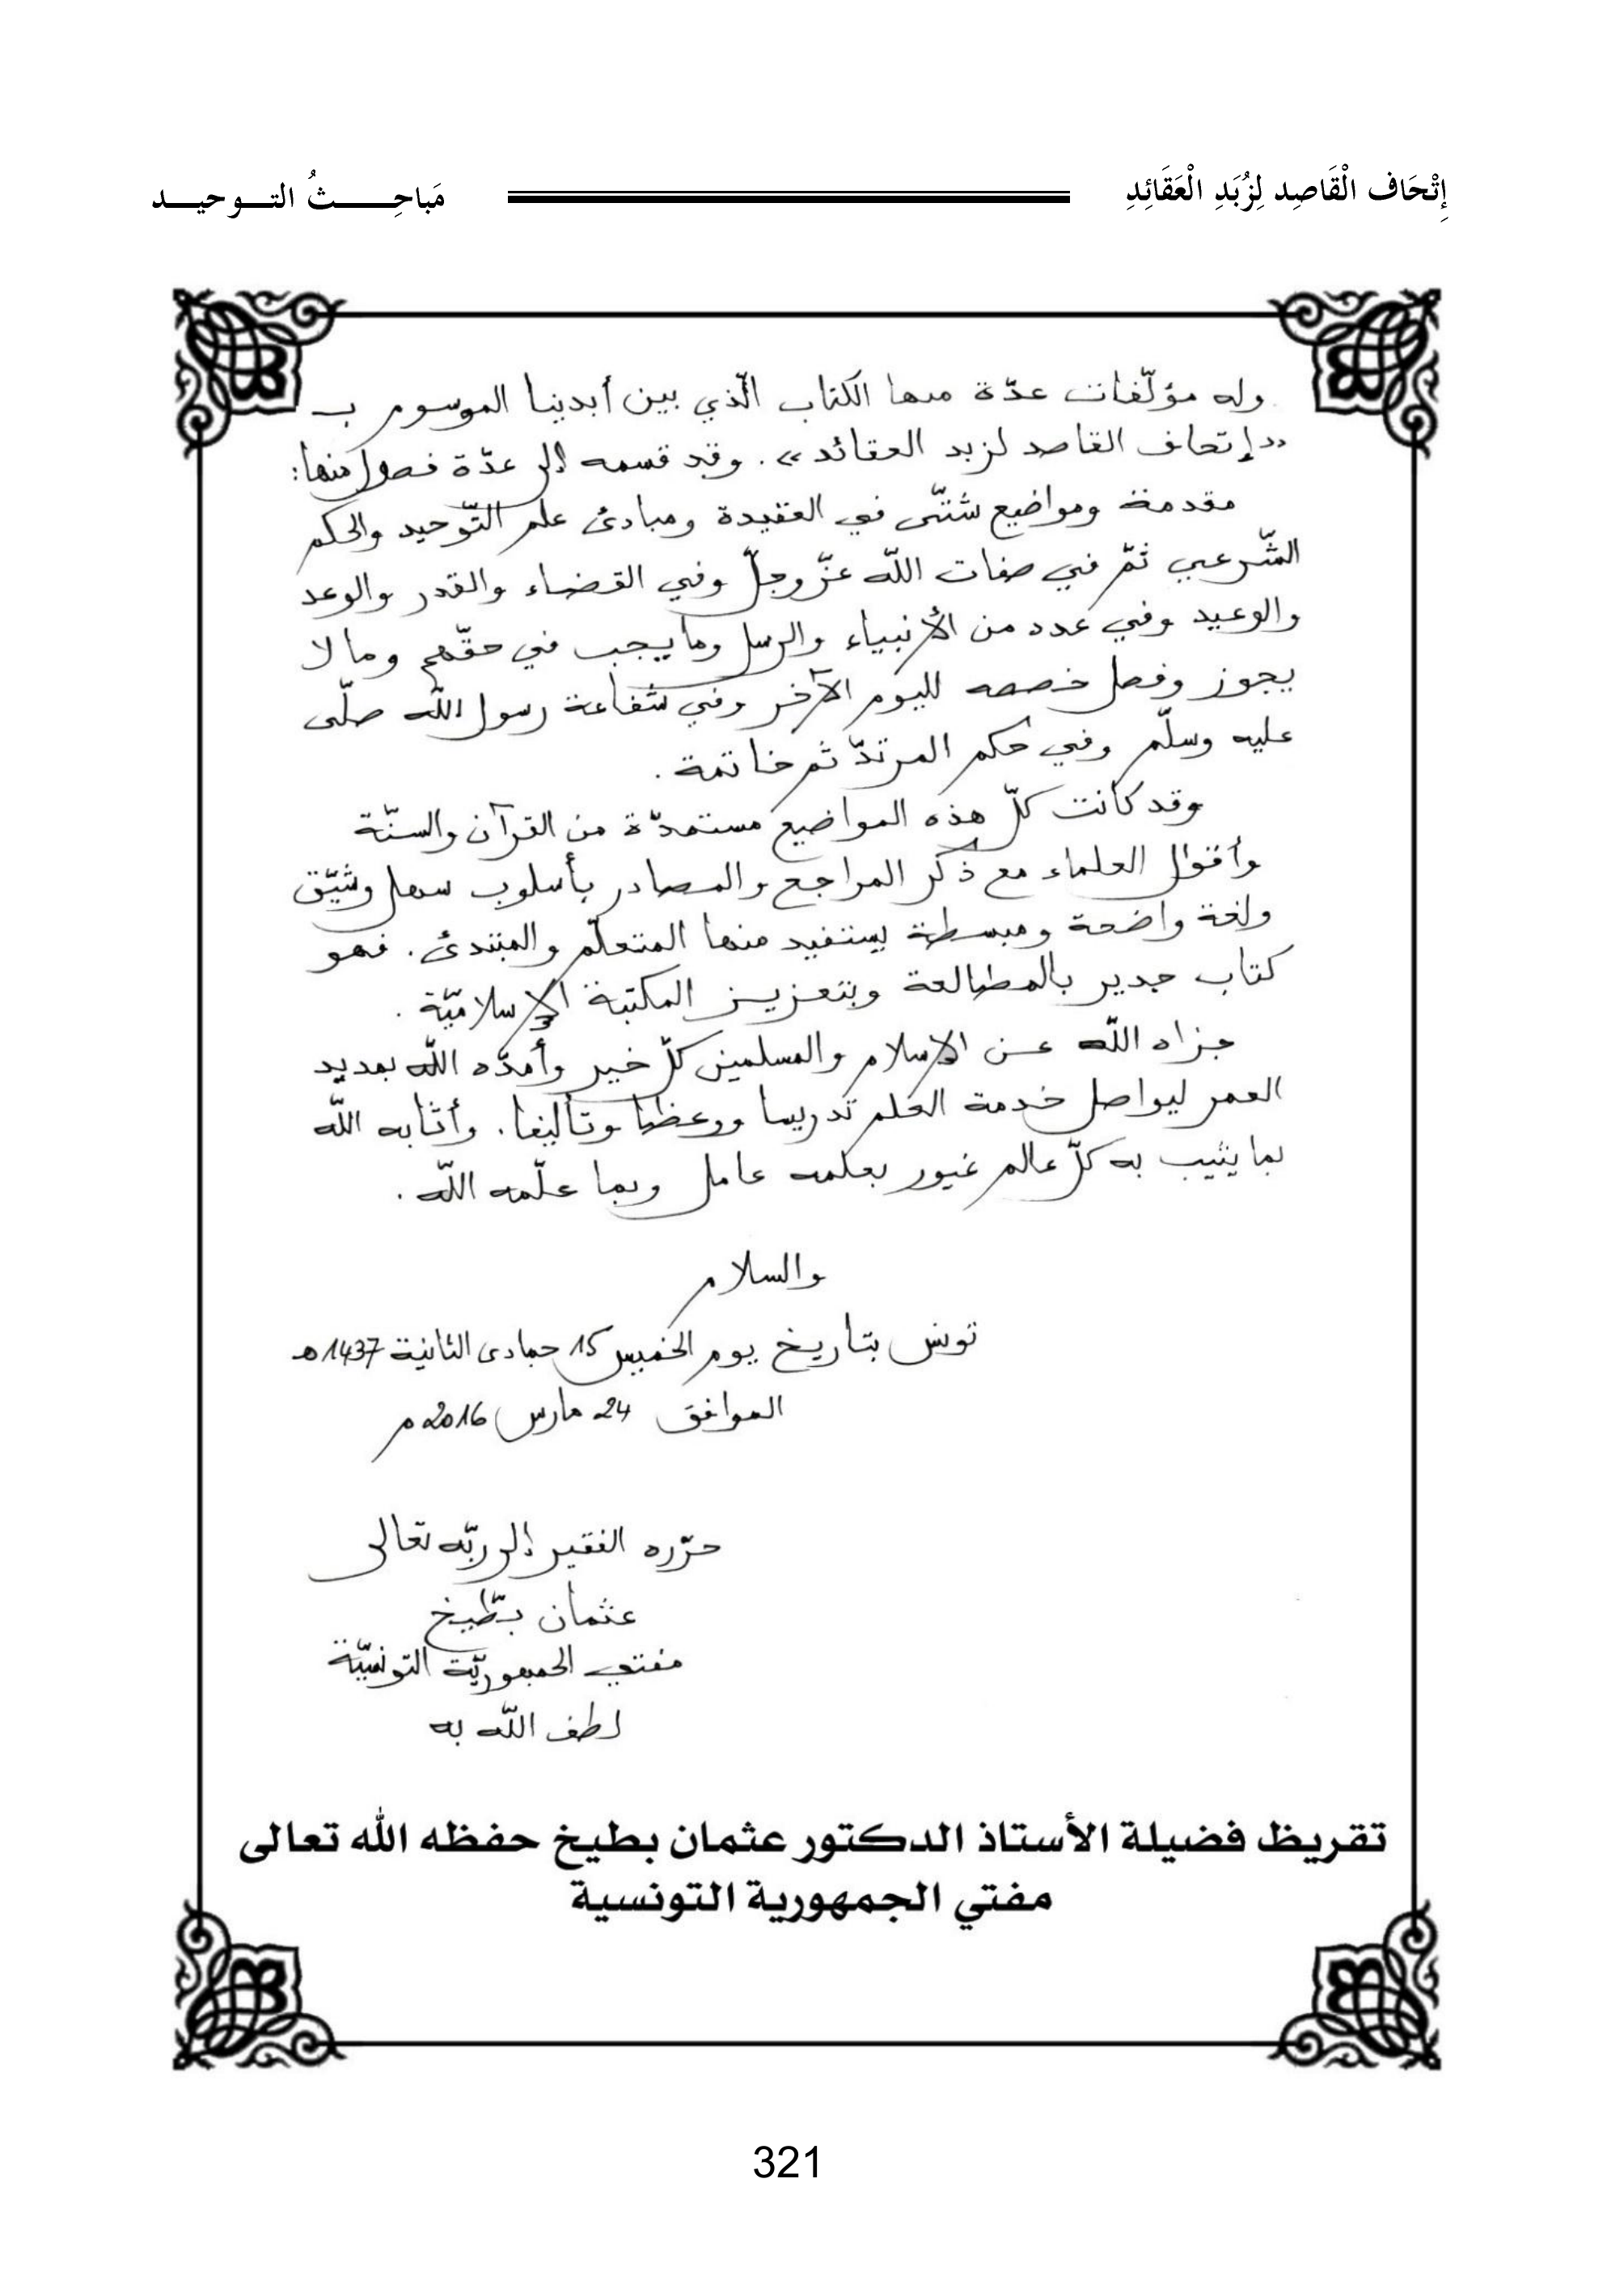 إِتْحَاف الْقَاصِد لِزُبَدِ الْعَقَائِدِ
مَباحِــــثُ التــوحيــد
وله مؤلّفات عدّة منها الكتاب الّذي بين أيدينا الموسوم بـ
«إتحاف القاصد لزبد العقائد». وقد قسمه إلى عدّة فصول منها:
مقدمة ومواضيع شتّى في العقيدة ومبادئ علم التّوحيد والحكم
الشّرعي ثمّ في صفات اللّه عزّ وجلّ وفي القضاء والقدر والوعد
والوعيد وفي عدد من الأنبياء والرسل وما يجب في حقّهم وما لا
يجوز وفصل خصصه لليوم الآخر وفي شفاعة رسول اللّه صلّى
عليه وسلّم وفي حكم المرتدّ ثم خاتمة.
وقد كانت كلّ هذه المواضيع مستمدّة من القرآن والسنّة
وأقوال العلماء مع ذكر المراجع والمصادر بأسلوب سهل وشيّق
ولغة واضحة ومبسطة يستفيد منها المتعلّم والمبتدئ. فهو
كتاب جدير بالمطالعة وبتعزيز المكتبة الإسلاميّة.
جزاه اللّه عن الإسلام والمسلمين كلّ خير وأمدّه اللّه بمديد
العمر ليواصل خدمة العلم تدريسا ووعظا وتأليفا. وأثابه اللّه
بما يثيب به كلّ عالم غيور بعلمه عامل وبما علّمه اللّه.
والسلام
تونس بتاريخ يوم الخميس 15 جمادى الثانية 1437هـ
الموافق 24 مارس 2016م
حرّره الفقير إلى ربّه تعالى
عثمان بطّيخ
مفتي الجمهوريّة التونسيّة
لطف اللّه به
تقريظ فضيلة الأستاذ الدكتور عثمان بطيخ حفظه الله تعالى
مفتي الجمهورية التونسية
321